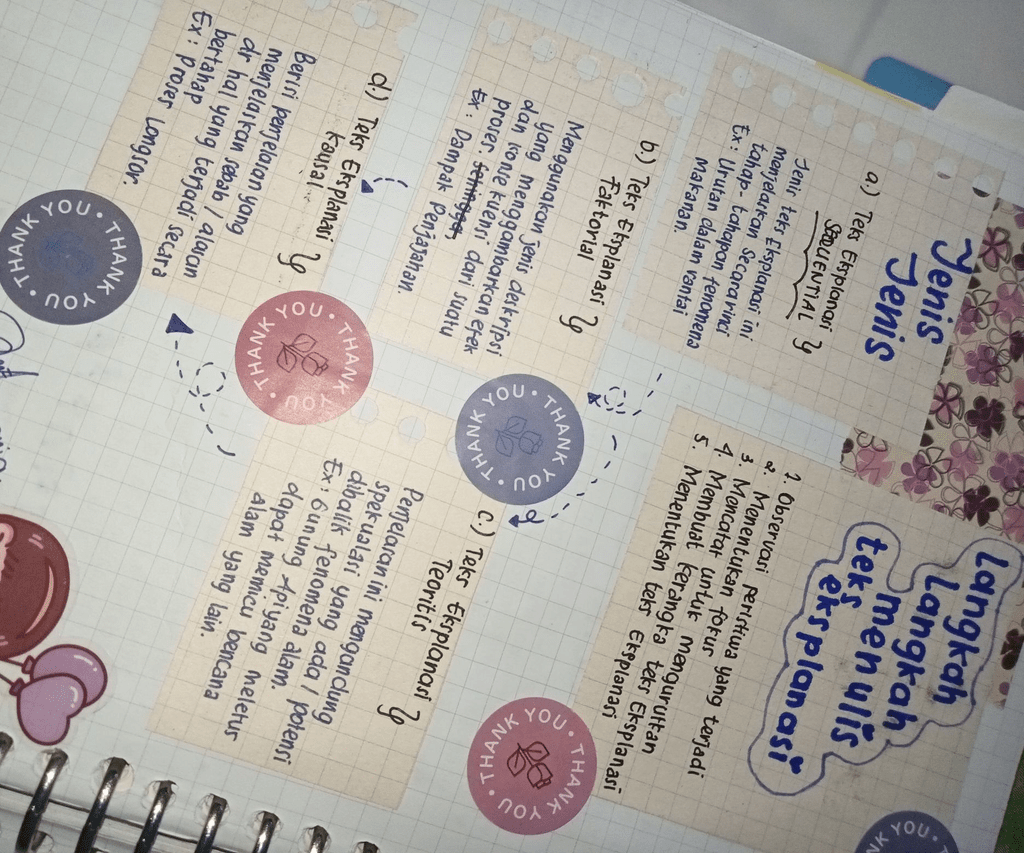 Jenis
Jenis
a) Teks Eksplanasi
SEQUENTIAL
Jenis teks Eksplanasi ini
menjelaskan secara rinci
tahap-tahapan fenomena
Ex: Urutan dalam rantai
makanan.
b) Teks Eksplanasi
Faktorial
Menggunakan jenis deskripsi
yang menggambarkan efek
dan konsekuensi dari suatu
proses
Ex: Dampak Penjajahan.
d.) Teks Eksplanasi
kausal.
Berisi penjelasan yang
menjelaskan sebab / alasan
dr hal yang terjadi secara
bertahap
Ex: proses Longsor.
Langkah
Langkah
menulis
teks
eksplanasi
1. Observasi peristiwa yang terjadi
2. Menentukan fokus
3. Mencatat untuk mengurutkan
4. Membuat kerangka teks Eksplanasi
5. Menentukan teks Eksplanasi
c.) Teks Eksplanasi
Teoritis
Penjelasan ini mengandung
spekualasi yang ada / potensi
dibalik fenomena alam.
Ex: Gunung Api yang meletus
dapat memicu bencana
alam yang lain.
THANK YOU • THANK YOU •
THANK YOU • THANK YOU •
THANK YOU • THANK YOU •
THANK YOU • THANK YOU •
THANK YOU